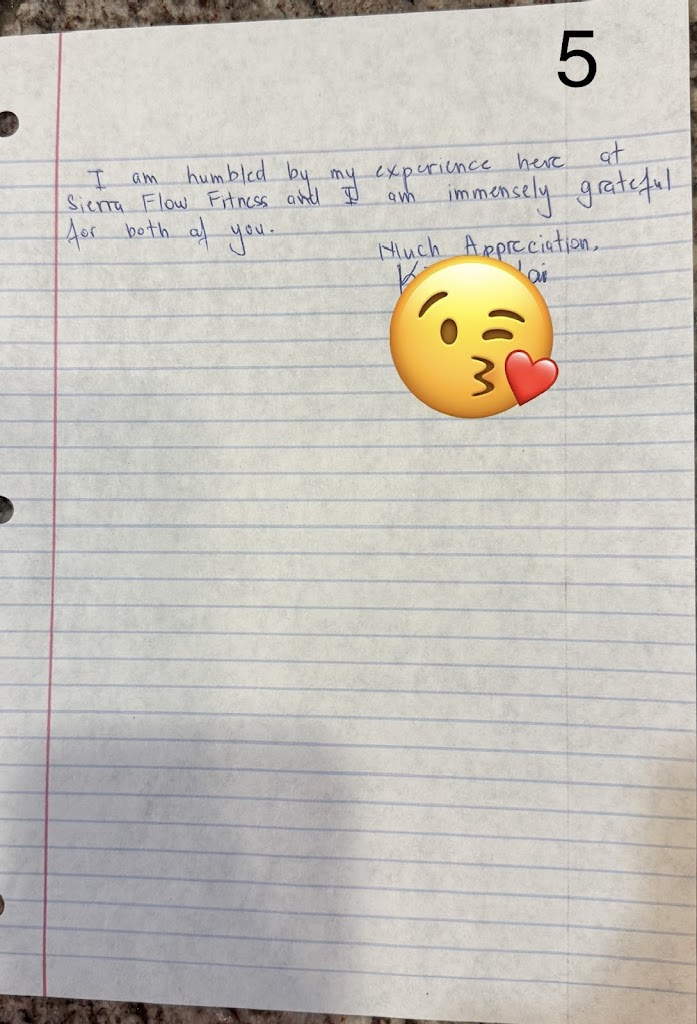 5
I am humbled by my experience here at
Sierra Flow Fitness and I am immensely grateful
for both of you.
Much Appreciation,